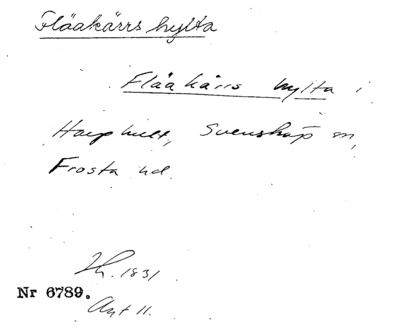 Flåakärrs hylta
Flåa kärrs hylta i
Harphult, Svensköp sn,
Frosta hd.
1831
Nr 6789.
Akt 11.